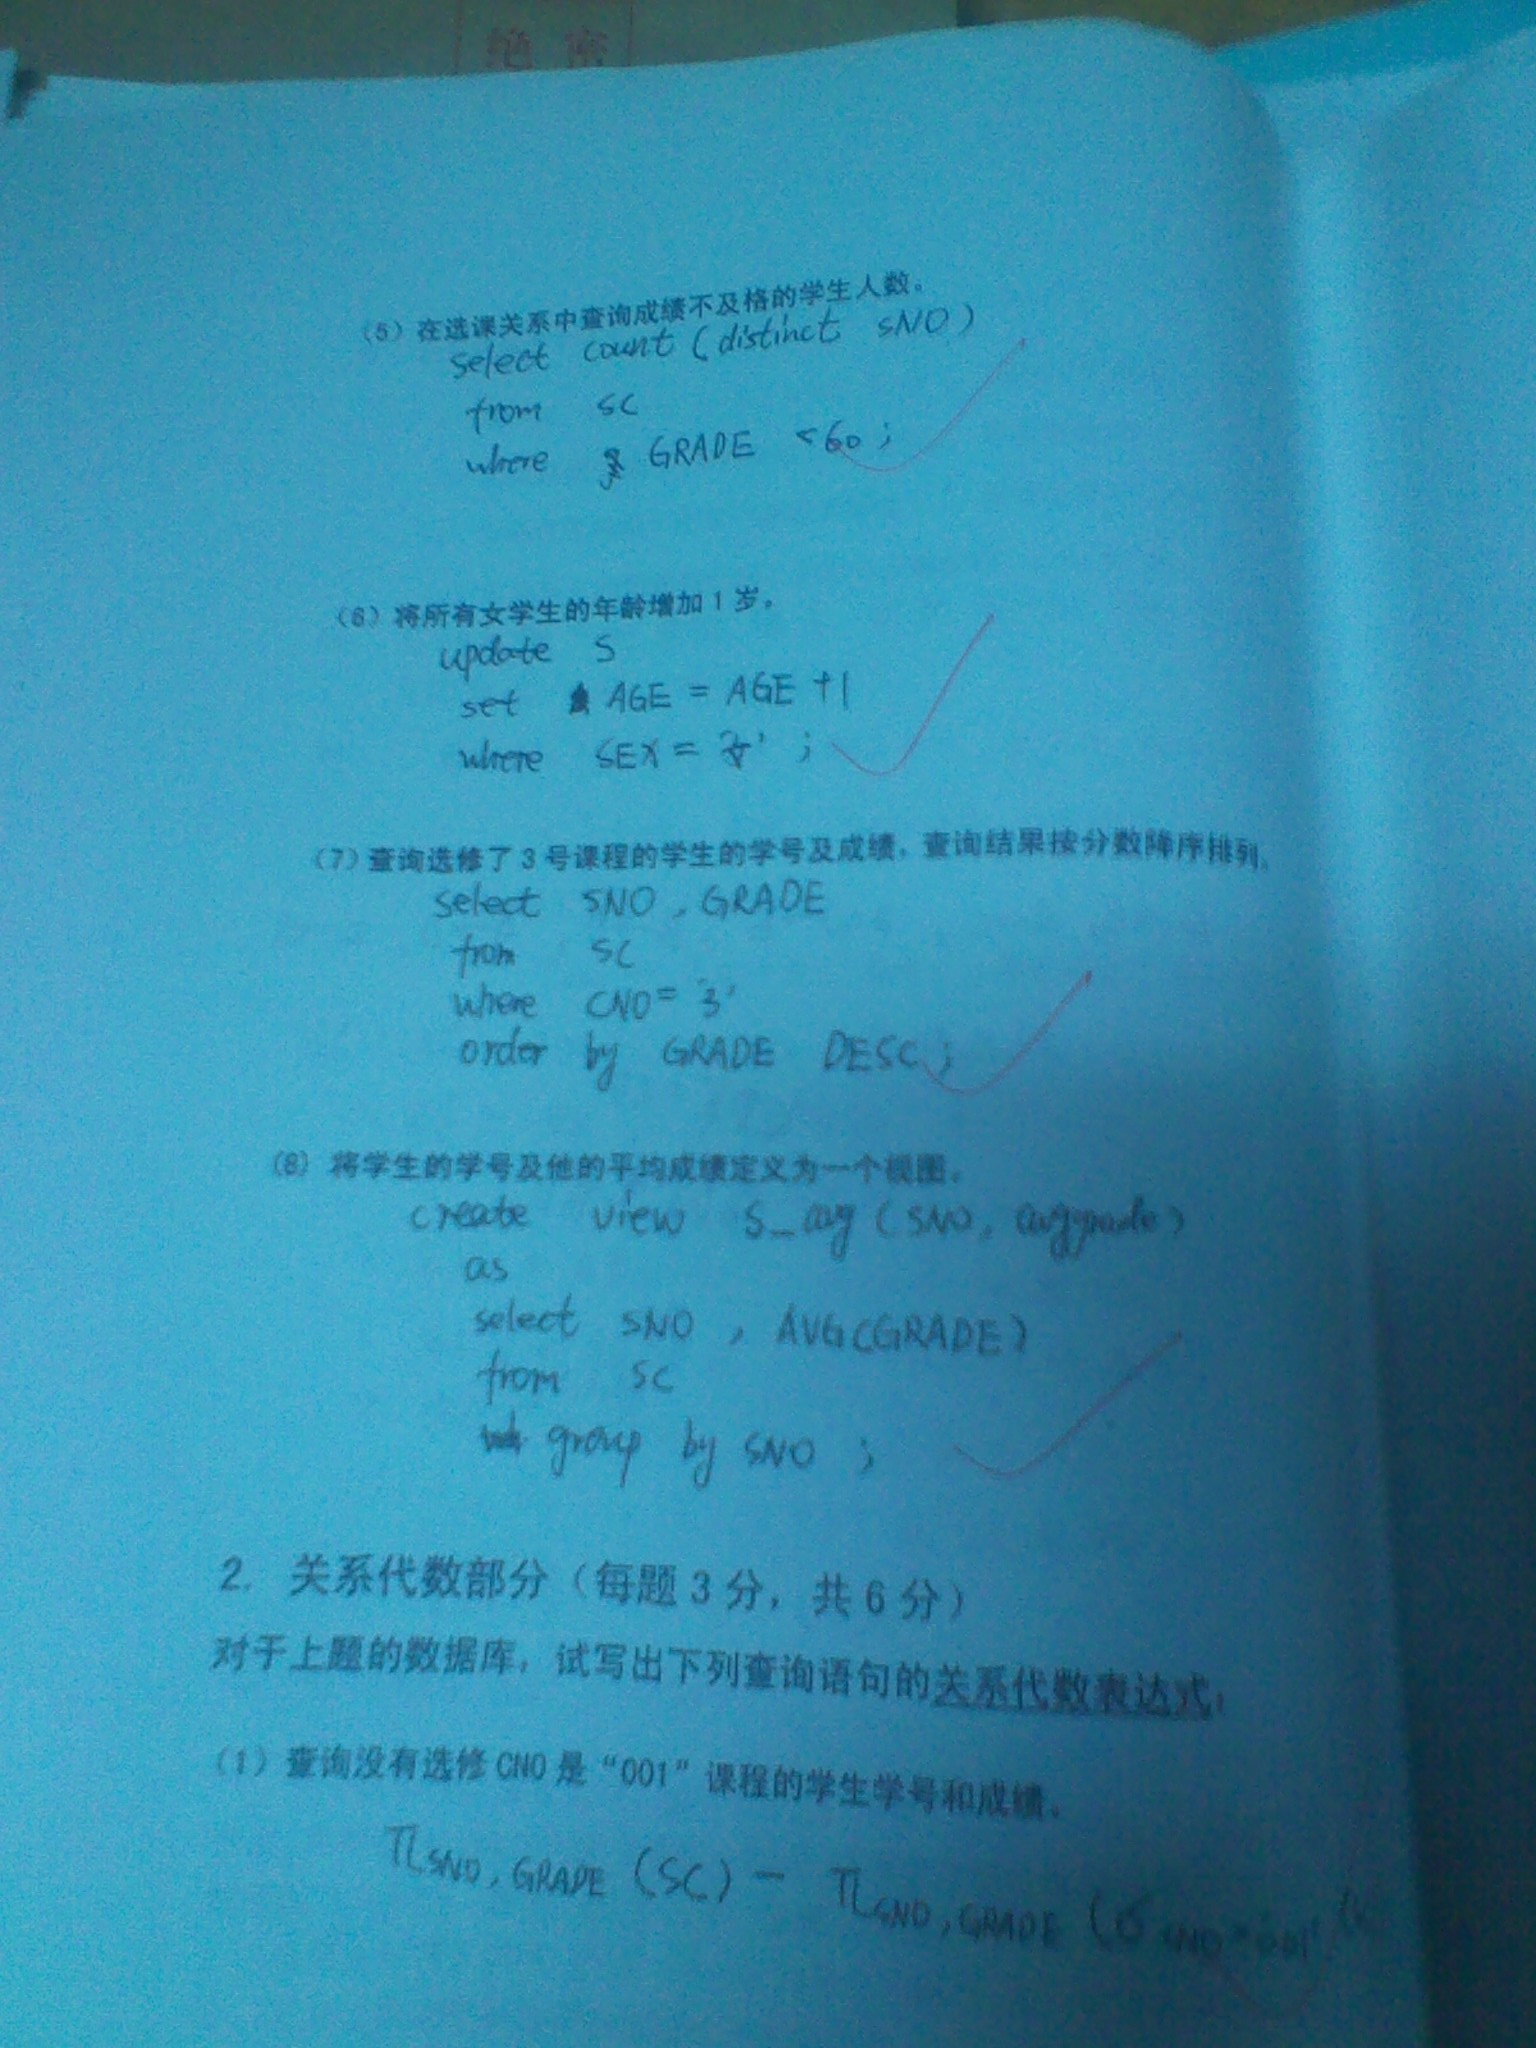 绝密
(5)在选课关系中查询成绩不及格的学生人数。
select count(distinct SNO)
from SC
where GRADE <60;
(6)将所有女学生的年龄增加1岁。
update S
set AGE = AGE +1
where SEX = '女';
(7)查询选修了3号课程的学生的学号及成绩,查询结果按分数降序排列。
select SNO, GRADE
from SC
where CNO='3'
order by GRADE DESC;
(8) 将学生的学号及他的平均成绩定义为一个视图。
create view S_avg(SNO, avggrade)
as
select SNO, AVG(GRADE)
from SC
group by SNO;
2. 关系代数部分(每题3分,共6分)
对于上题的数据库,试写出下列查询语句的关系代数表达式:
(1)查询没有选修CNO是“001”课程的学生学号和成绩。
π SNO,GRADE (SC) - π SNO,GRADE (σ CNO='001' (